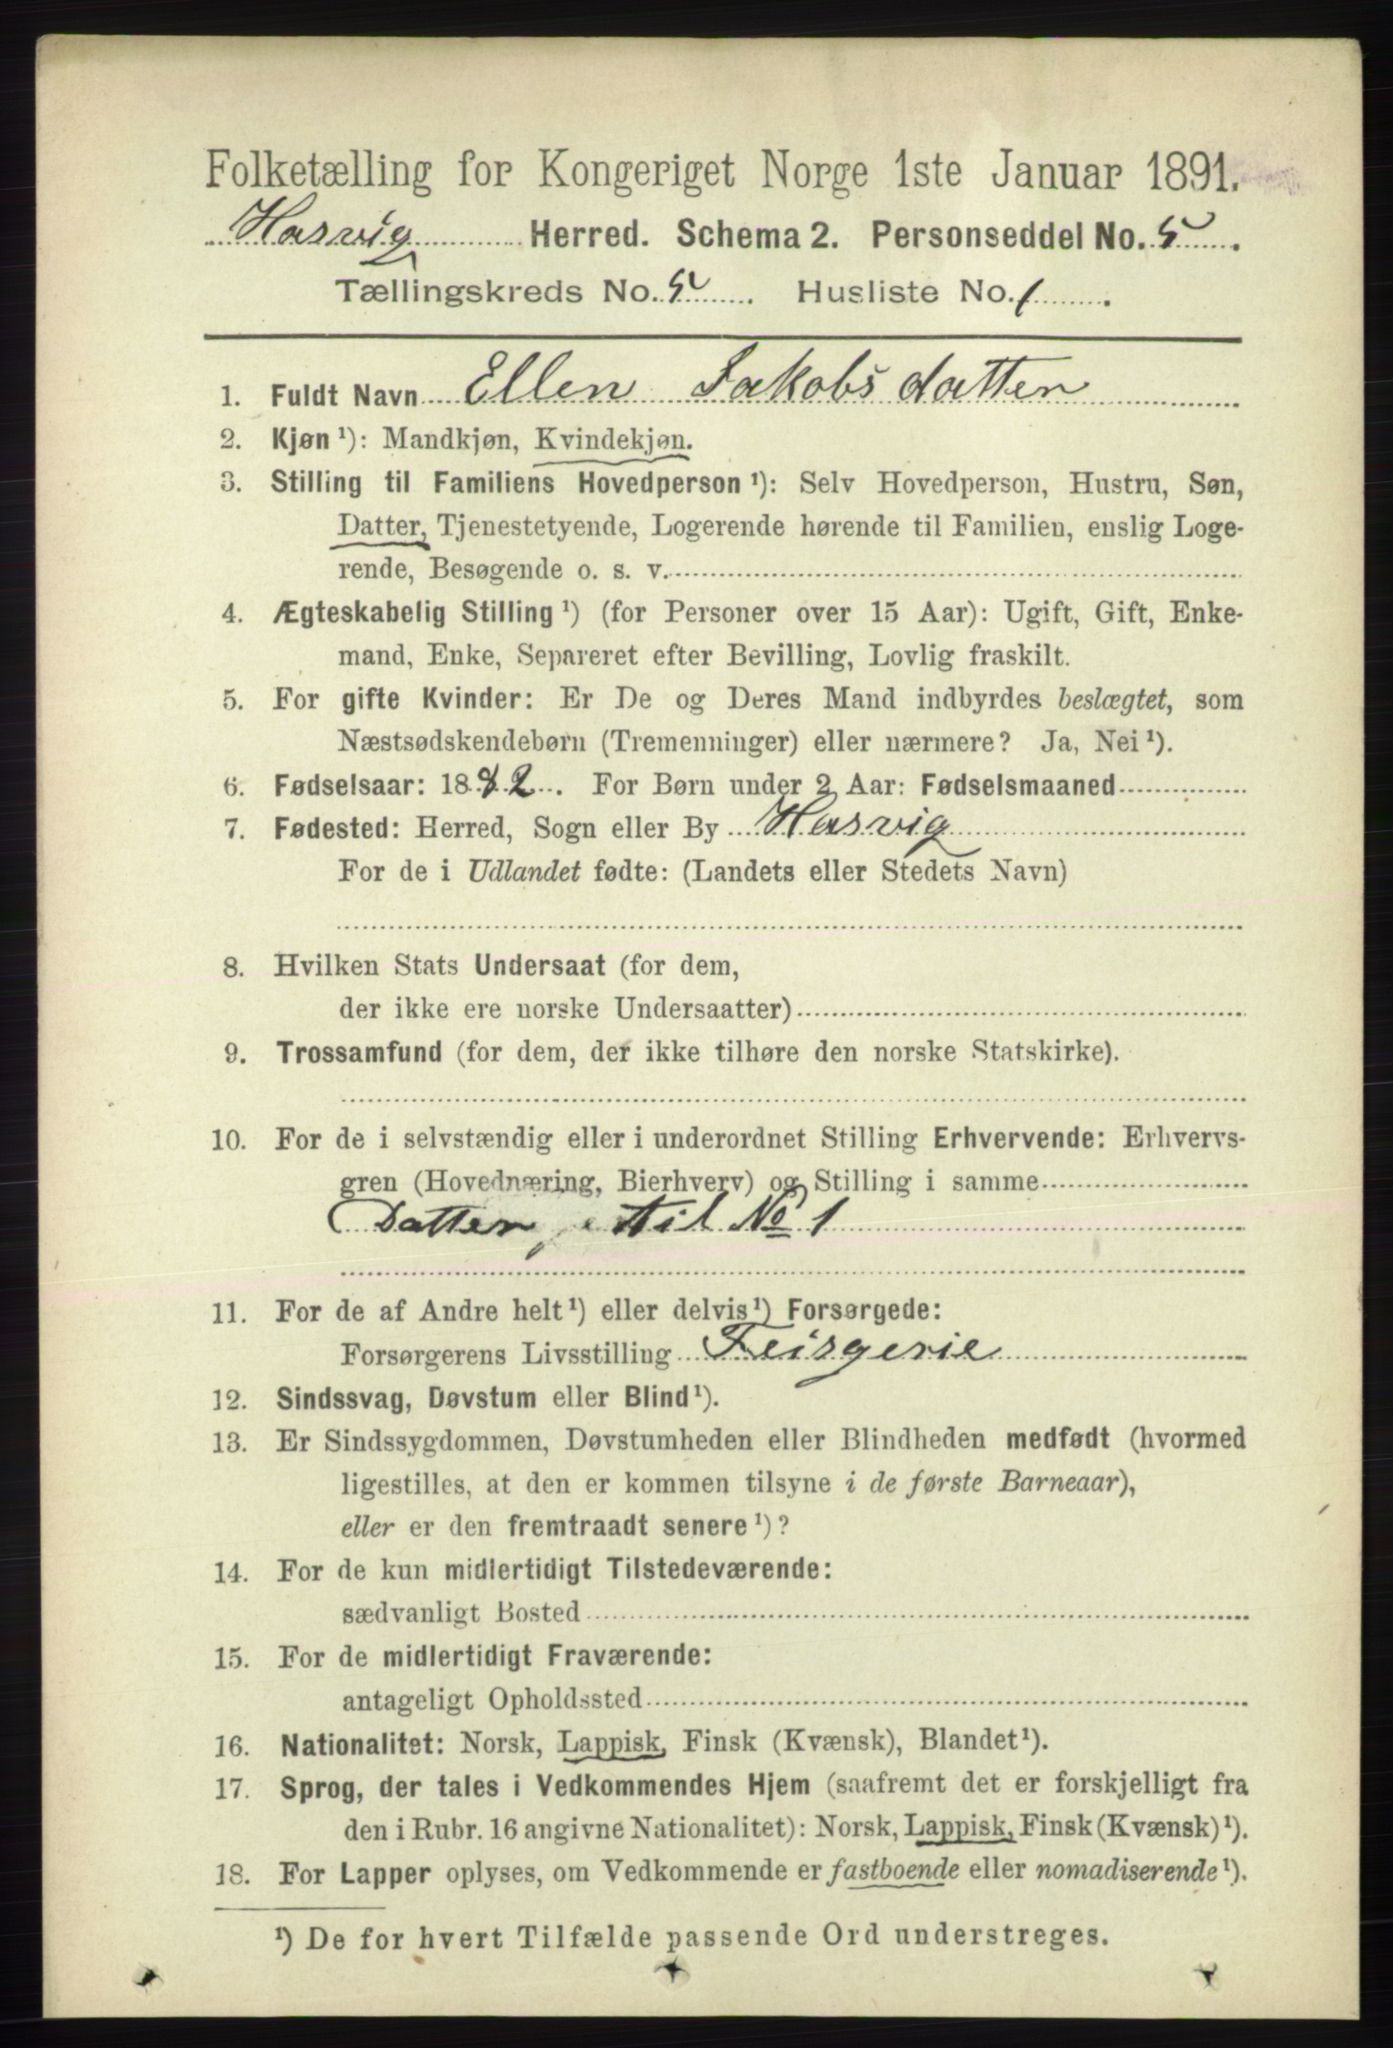 Folketælling for Kongeriget Norge 1ste Januar 1891.
Hasvig Herred. Schema 2. Personseddel No. 5.
Tællingskreds No. 5. Husliste No. 1.
1. Fuldt Navn Ellen Jakobsdatter
2. Kjøn ¹): Mandkjøn, Kvindekjøn.
3. Stilling til Familiens Hovedperson ¹): Selv Hovedperson, Hustru, Søn,
Datter, Tjenestetyende, Logerende hørende til Familien, enslig Loge-
rende, Besøgende o. s. v.
4. Ægteskabelig Stilling ¹) (for Personer over 15 Aar): Ugift, Gift, Enke-
mand, Enke, Separeret efter Bevilling, Lovlig fraskilt.
5. For gifte Kvinder: Er De og Deres Mand indbyrdes beslægtet, som
Næstsødskendebørn (Tremenninger) eller nærmere? Ja, Nei ¹).
6. Fødselsaar: 1882. For Børn under 2 Aar: Fødselsmaaned
7. Fødested: Herred, Sogn eller By Hasvig
For de i Udlandet fødte: (Landets eller Stedets Navn)
8. Hvilken Stats Undersaat (for dem,
der ikke ere norske Undersaatter)
9. Trossamfund (for dem, der ikke tilhøre den norske Statskirke).
10. For de i selvstændig eller i underordnet Stilling Erhvervende: Erhvervs-
gren (Hovednæring, Bierhverv) og Stilling i samme
Datter, til No 1
11. For de af Andre helt ¹) eller delvis ¹) Forsørgede:
Forsørgerens Livsstilling
12. Sindssvag, Døvstum eller Blind ¹).
13. Er Sindssygdommen, Døvstumheden eller Blindheden medfødt (hvormed
ligestilles, at den er kommen tilsyne i de første Barneaar),
eller er den fremtraadt senere ¹)?
14. For de kun midlertidigt Tilstedeværende:
sædvanligt Bosted
15. For de midlertidigt Fraværende:
antageligt Opholdssted
16. Nationalitet: Norsk, Lappisk, Finsk (Kvænsk), Blandet ¹).
17. Sprog, der tales i Vedkommendes Hjem (saafremt det er forskjelligt fra
den i Rubr. 16 angivne Nationalitet): Norsk, Lappisk, Finsk (Kvænsk) ¹).
18. For Lapper oplyses, om Vedkommende er fastboende eller nomadiserende ¹).
¹) De for hvert Tilfælde passende Ord understreges.